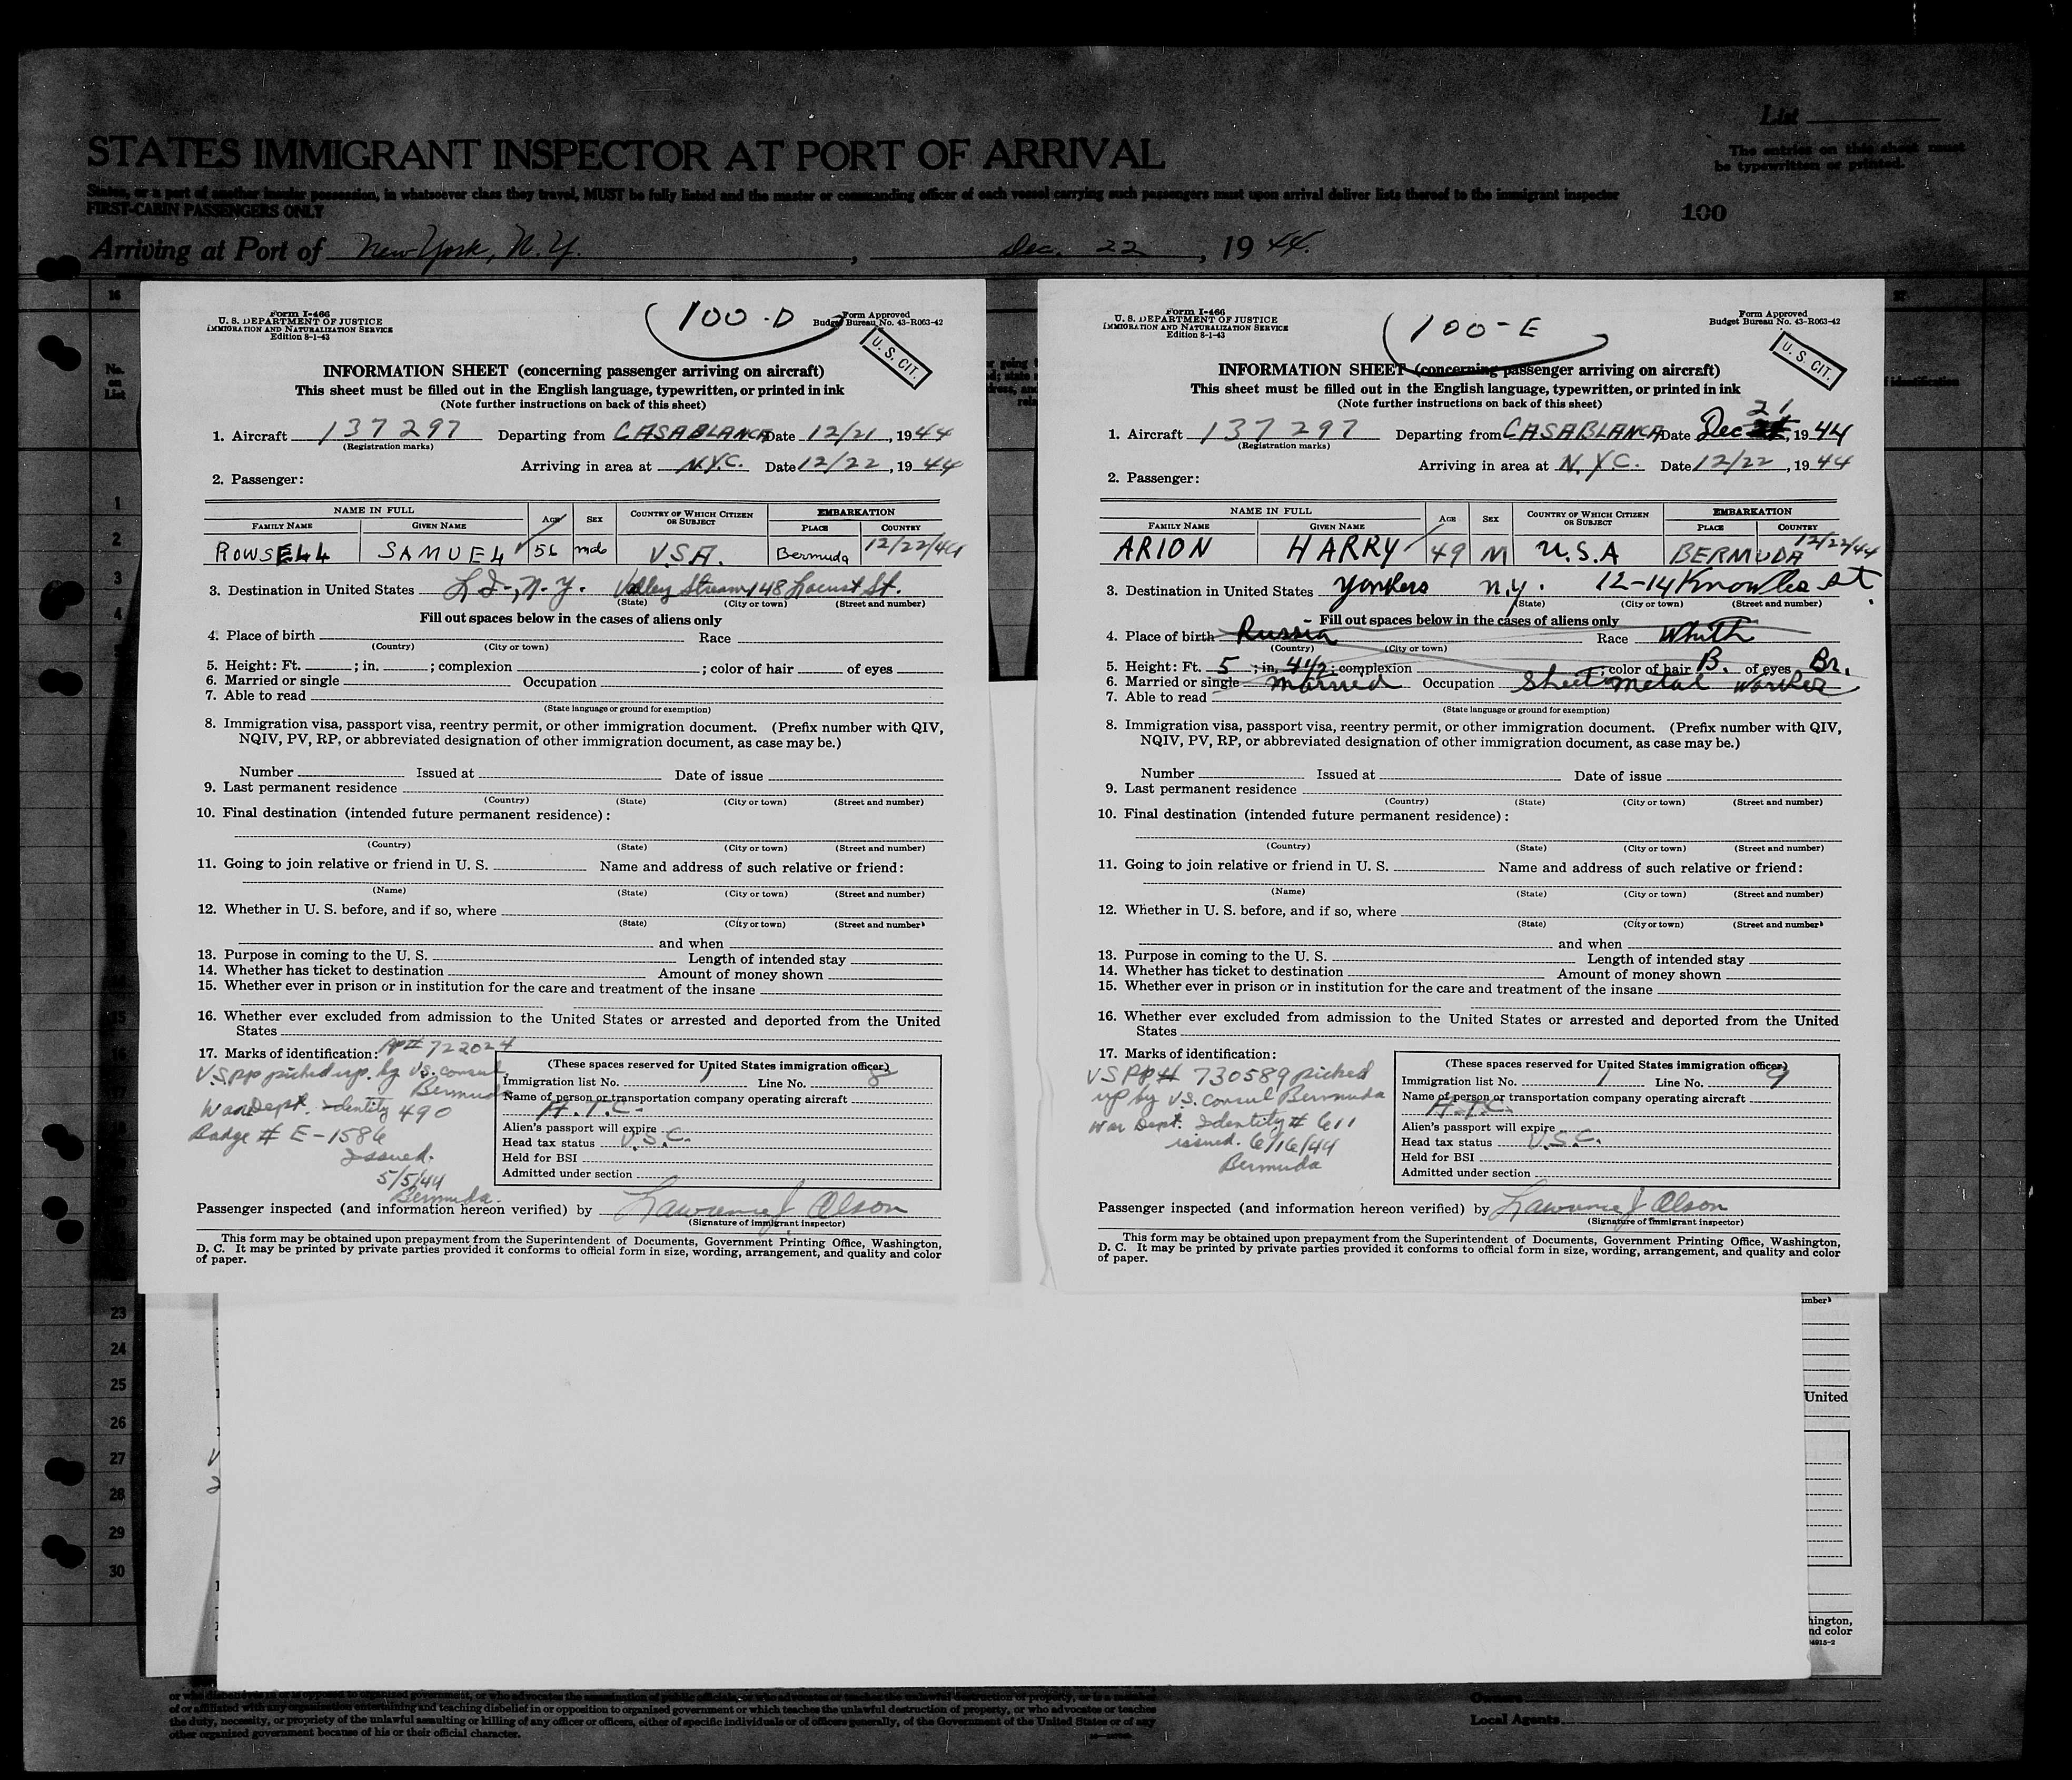 List
STATES IMMIGRANT INSPECTOR AT PORT OF ARRIVAL
The entries on this sheet must
be typewritten or printed.
States, or a port of another insular possession, in whatsoever class they travel, MUST be fully listed and the master or commanding officer of each vessel carrying such passengers must upon arrival deliver lists thereof to the immigrant inspector
FIRST-CABIN PASSENGERS ONLY
100
Arriving at Port of New York, N.Y., Dec. 22, 1944.
No. on List
Form I-466
U. S. DEPARTMENT OF JUSTICE
IMMIGRATION AND NATURALIZATION SERVICE
Edition 8-1-43
100-D
Form Approved
Budget Bureau No. 43-R063-42
U. S. CIT.
INFORMATION SHEET (concerning passenger arriving on aircraft)
This sheet must be filled out in the English language, typewritten, or printed in ink
(Note further instructions on back of this sheet)
1. Aircraft 137297 Departing from CASABLANCA Date 12/21, 1944
(Registration marks)
Arriving in area at N.Y.C. Date 12/22, 1944
2. Passenger:
NAME IN FULL AGE SEX COUNTRY OF WHICH CITIZEN OR SUBJECT EMBARKATION
FAMILY NAME GIVEN NAME PLACE COUNTRY
ROWSELL SAMUEL 56 male U.S.A. Bermuda 12/22/44
3. Destination in United States L.I., N.Y. Valley Stream 148 Locust St.
(State) (City or town) (Street and number)
Fill out spaces below in the cases of aliens only
4. Place of birth Race
(Country) (City or town)
5. Height: Ft. ; in. ; complexion ; color of hair of eyes
6. Married or single Occupation
7. Able to read
(State language or ground for exemption)
8. Immigration visa, passport visa, reentry permit, or other immigration document. (Prefix number with QIV,
NQIV, PV, RP, or abbreviated designation of other immigration document, as case may be.)
Number Issued at Date of issue
9. Last permanent residence
(Country) (State) (City or town) (Street and number)
10. Final destination (intended future permanent residence):
(Country) (State) (City or town) (Street and number)
11. Going to join relative or friend in U. S. Name and address of such relative or friend:
(Name) (State) (City or town) (Street and number)
12. Whether in U. S. before, and if so, where
(State) (City or town) (Street and number)
and when
13. Purpose in coming to the U. S. Length of intended stay
14. Whether has ticket to destination Amount of money shown
15. Whether ever in prison or in institution for the care and treatment of the insane
16. Whether ever excluded from admission to the United States or arrested and deported from the United
States
17. Marks of identification: PP# 722024
U.S. PP picked up. by U.S. consul,
Bermuda
War Dept. Identity 490
Badge # E-1586
Issued.
5/5/44
Bermuda.
(These spaces reserved for United States immigration officer)
Immigration list No. 1 Line No. 8
Name of person or transportation company operating aircraft
A.T.C.
Alien's passport will expire
Head tax status U.S.C.
Held for BSI
Admitted under section
Passenger inspected (and information hereon verified) by Lawrence J. Olson
(Signature of immigrant inspector)
This form may be obtained upon prepayment from the Superintendent of Documents, Government Printing Office, Washington,
D. C. It may be printed by private parties provided it conforms to official form in size, wording, arrangement, and quality and color
of paper.
Form I-466
U. S. DEPARTMENT OF JUSTICE
IMMIGRATION AND NATURALIZATION SERVICE
Edition 8-1-43
100-E
Form Approved
Budget Bureau No. 43-R063-42
U. S. CIT.
INFORMATION SHEET (concerning passenger arriving on aircraft)
This sheet must be filled out in the English language, typewritten, or printed in ink
(Note further instructions on back of this sheet)
1. Aircraft 137297 Departing from CASABLANCA Date Dec 21, 1944
(Registration marks)
Arriving in area at N.Y.C. Date 12/22, 1944
2. Passenger:
NAME IN FULL AGE SEX COUNTRY OF WHICH CITIZEN OR SUBJECT EMBARKATION
FAMILY NAME GIVEN NAME PLACE COUNTRY
ARION HARRY 49 M U.S.A BERMUDA 12/22/44
3. Destination in United States Yonkers N.Y. 12-14 Knowles St.
(State) (City or town) (Street and number)
Fill out spaces below in the cases of aliens only
4. Place of birth Russia Race Whith
(Country) (City or town)
5. Height: Ft. 5 ; in. 4 1/2 ; complexion ; color of hair B. of eyes Br.
6. Married or single Married Occupation Sheet metal worker
7. Able to read
(State language or ground for exemption)
8. Immigration visa, passport visa, reentry permit, or other immigration document. (Prefix number with QIV,
NQIV, PV, RP, or abbreviated designation of other immigration document, as case may be.)
Number Issued at Date of issue
9. Last permanent residence
(Country) (State) (City or town) (Street and number)
10. Final destination (intended future permanent residence):
(Country) (State) (City or town) (Street and number)
11. Going to join relative or friend in U. S. Name and address of such relative or friend:
(Name) (State) (City or town) (Street and number)
12. Whether in U. S. before, and if so, where
(State) (City or town) (Street and number)
and when
13. Purpose in coming to the U. S. Length of intended stay
14. Whether has ticket to destination Amount of money shown
15. Whether ever in prison or in institution for the care and treatment of the insane
16. Whether ever excluded from admission to the United States or arrested and deported from the United
States
17. Marks of identification:
US PP# 730589 picked
up by U.S. consul Bermuda
War Dept. Identity # 611
issued. 6/16/44
Bermuda
(These spaces reserved for United States immigration officer)
Immigration list No. 1 Line No. 9
Name of person or transportation company operating aircraft
A.T.C.
Alien's passport will expire
Head tax status U.S.C.
Held for BSI
Admitted under section
Passenger inspected (and information hereon verified) by Lawrence J Olson
(Signature of immigrant inspector)
This form may be obtained upon prepayment from the Superintendent of Documents, Government Printing Office, Washington,
D. C. It may be printed by private parties provided it conforms to official form in size, wording, arrangement, and quality and color
of paper.
23
24
25
26
27
28
29
30
United
hington,
nd color
or who disbelieves in or is opposed to organized government, or who advocates the assassination of public officials, or who advocates or teaches the unlawful destruction of property, or is a member
of or affiliated with any organization entertaining and teaching disbelief in or opposition to organized government or which teaches the unlawful destruction of property, or who advocates or teaches
the duty, necessity, or propriety of the unlawful assaulting or killing of any officer or officers, either of specific individuals or of officers generally, of the Government of the United States or of any
other organized government because of his or their official character.
Owners
Local Agents